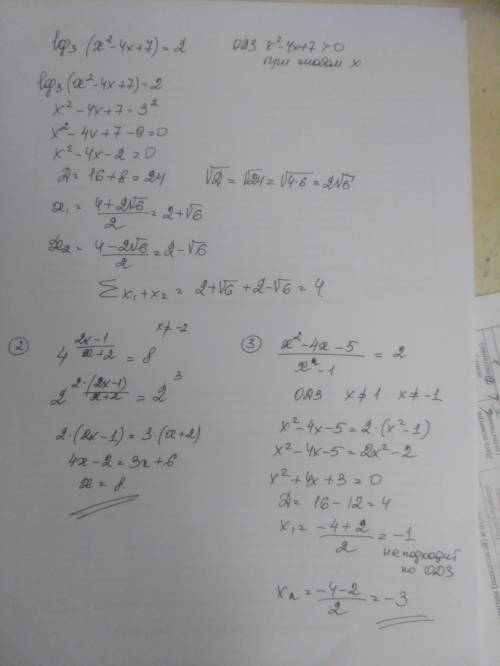 log₃(x²-4x+7)=2 ОДЗ x²-4x+7>0
при любом x
log₃(x²-4x+7)=2
x²-4x+7=3²
x²-4x+7-9=0
x²-4x-2=0
D=16+8=24 √D=√24=√4·6=2√6
x₁=(4+2√6)/2=2+√6
x₂=(4-2√6)/2=2-√6
∑x₁+x₂=2+√6+2-√6=4
② x≠-2
4^((2x-1)/(x+2))=8
2^(2·(2x-1)/(x+2))=2³
2·(2x-1)=3·(x+2)
4x-2=3x+6
x=8
③ (x²-4x-5)/(x²-1)=2
ОДЗ x≠1 x≠-1
x²-4x-5=2·(x²-1)
x²-4x-5=2x²-2
x²+4x+3=0
D=16-12=4
x₁=(-4+2)/2=-1
не подходит
по ОДЗ
x₂=(-4-2)/2=-3